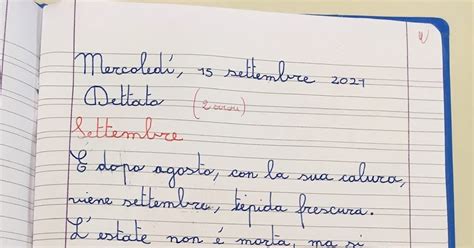 Mercoledí, 15 settembre 2021
Dettato
Settembre
E dopo agosto, con la sua calura,
viene settembre, tepida frescura.
L'estate non è morta, ma si